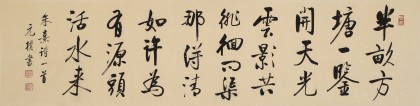 半畝方
塘一鑒
開天光
雲影共
徘徊問渠
那得清
如許為
有源頭
活水來
朱熹詩一首